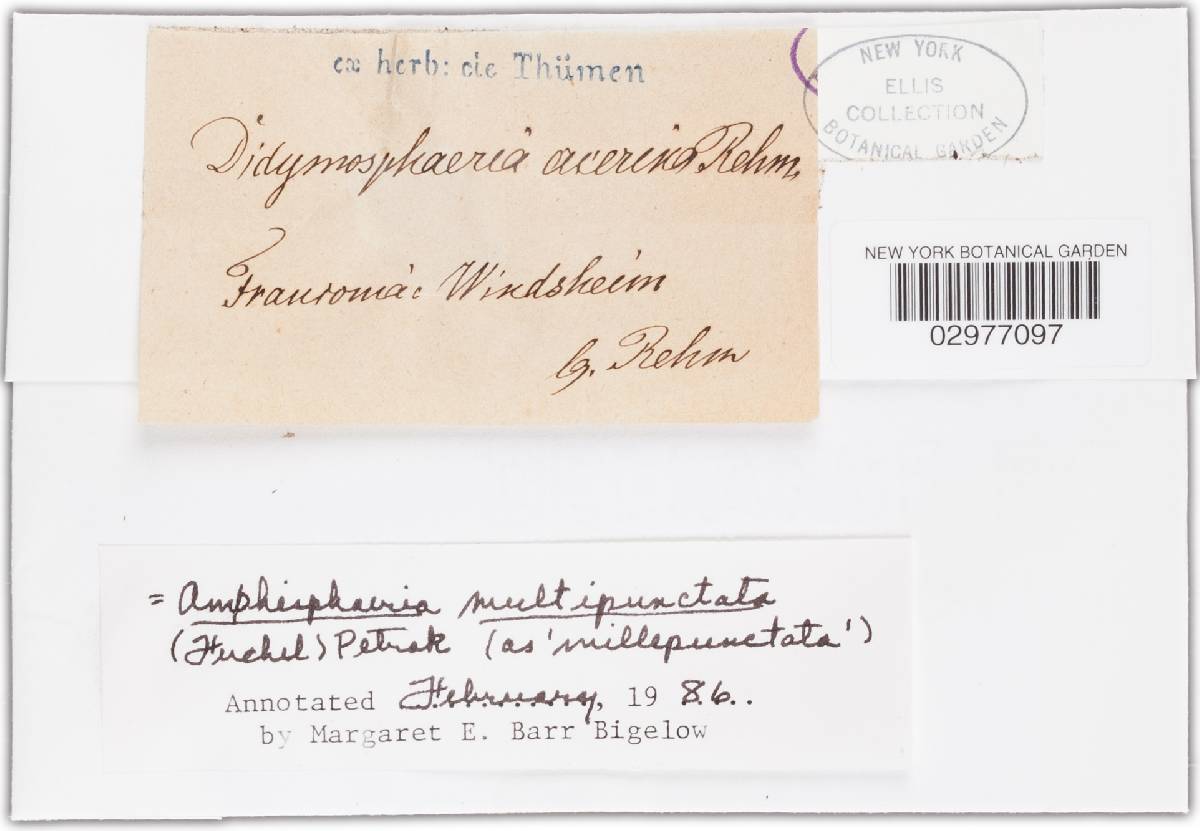 ex herb: de Thümen
Didymosphaeria acerina Rehm.
Franconia: Windsheim
lg. Rehm
NEW YORK
ELLIS
COLLECTION
BOTANICAL GARDEN
NEW YORK BOTANICAL GARDEN
02977097
= Amphisphaeria multipunctata
(Fuckel) Petrak (as 'millepunctata')
Annotated February, 19 86..
by Margaret E. Barr Bigelow